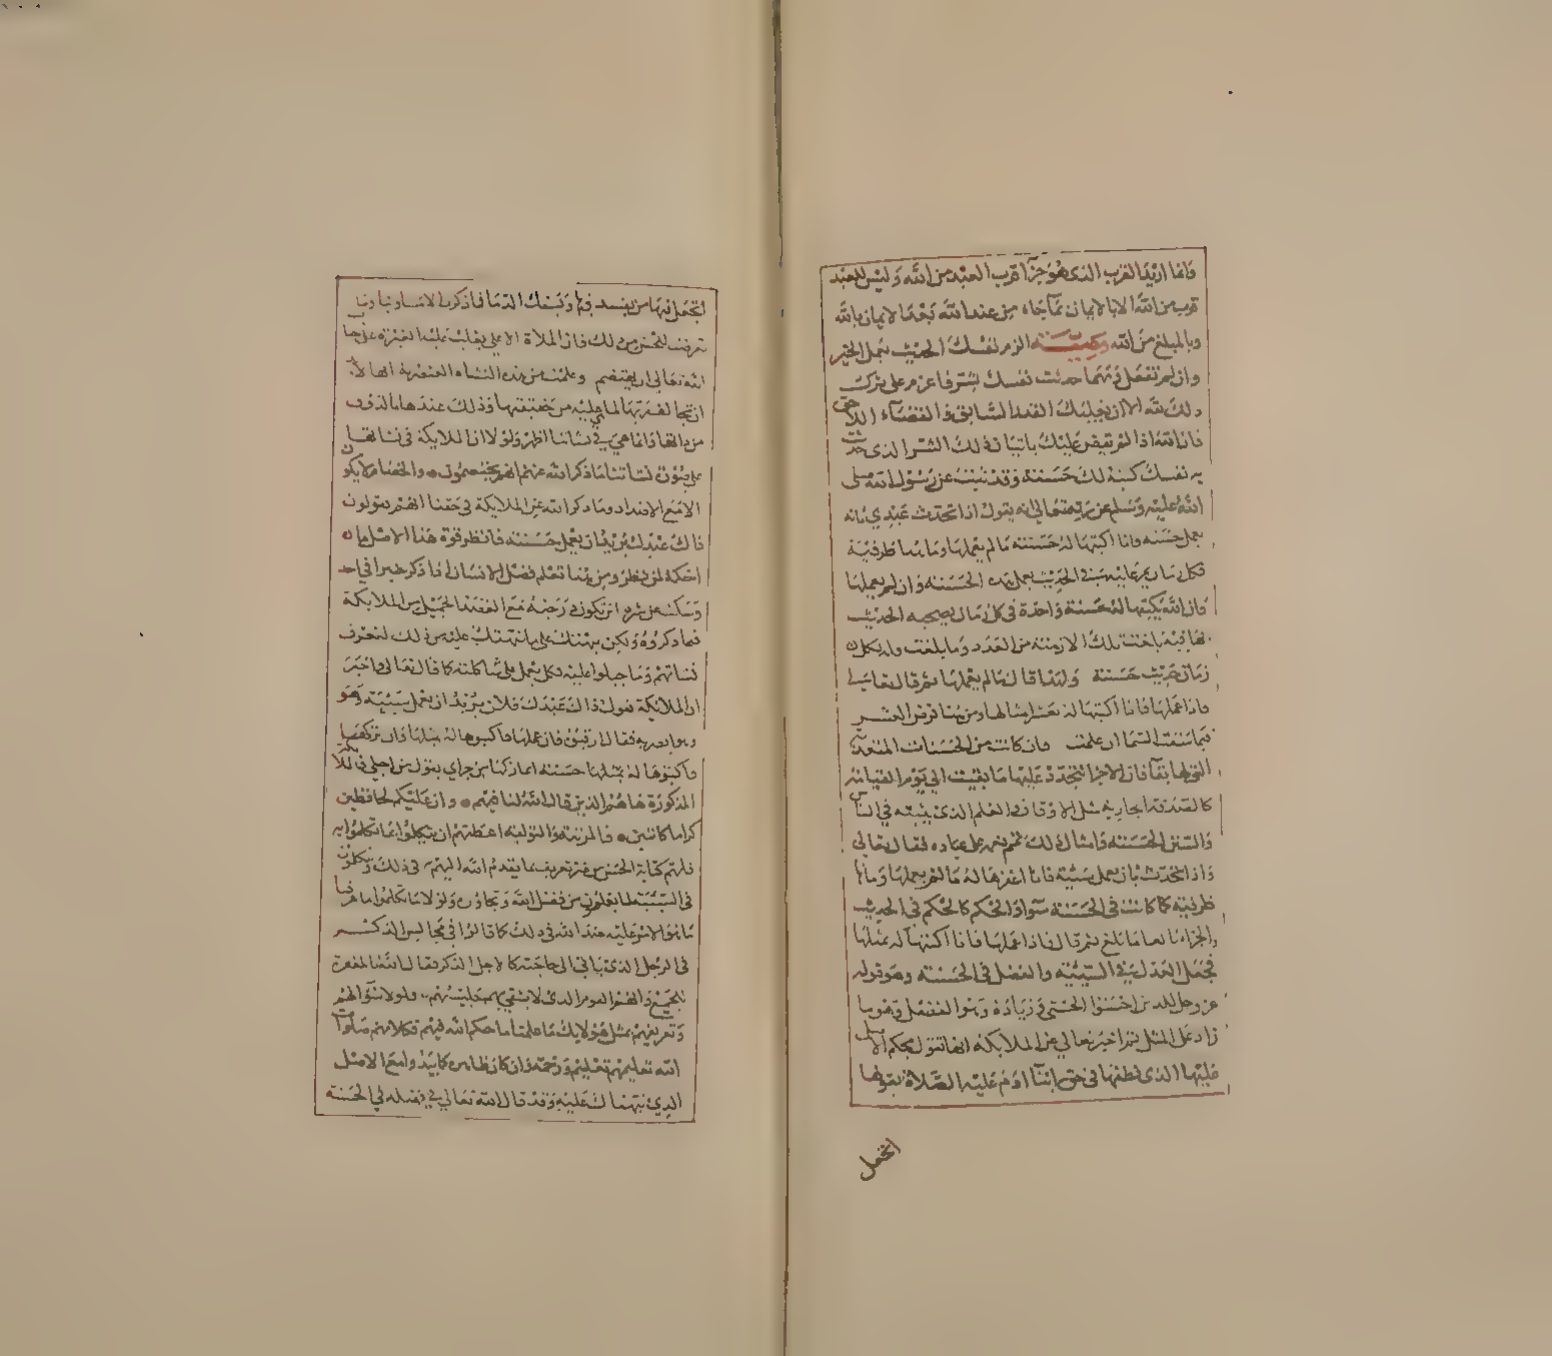 وانما اريد القرب الذى هو جزآ قرب العبد من الله وليس للعبد
قرب من الله الا بالايمان بما جاء من عند الله بعد الايمان بالله
وبالمبلغ من الله وصيــة الزم نفسك الحديث بعمل الخير
وان لم تفعل ومهما حدثت نفسك بشر فاعزم على ترك
ذلك لله الا ان يغلبك القدر السابق والقضآء اللاحق
فان الله اذا لم يقض عليك باتيان ذلك الشر الذى حدثت
به نفسك كتبه لك حسنة وقد ثبت عن رسول الله صلى
الله عليه وسلم عن ربه تعالى انه يقول اذا تحدث عبدي بانه
يعمل حسنه فانا اكتبها له حسنة ما لم يعملها وما هنا ظرفية
فكل زمان يمر عليه في الحديث بعمل هذه الحسنة وان لم يعملها
فان الله يكتبها له حسنة واحدة في كل زمان يصحبه الحديث
بها فيه بلغت تلك الازمنة من العدد وما بلغت وله بكل
زمان حديث حسنة ولهذا قال ما لم يعملها ثم قال تعالى
فاذا عملها فانا اكتبها له بعشر امثالها ومن هنا فرض العشر
فيما سقت السما ان علمت وان كانت من الحسنات المتعدية
التى لها بقآ فان الاجر يتجدد عليها ما بقيت الي يوم القيامة
كالصدقه الجارية مثل الاوقاف والعلم الذى يبثه في الناس
والسنن الحسنة وامثال ذلك ثم تمم نعمه على عباده فقال تعالى
واذا تحدث بان يعمل سيئة فانا اغفرها له ما لم يعملها وما هنا
ظرفيه كما كانت فى الحسنة سوآ والحكم كالحكم فى الحديث
والجزاء بالغا ما بلغ ثم قال فاذا عملها فانا اكتبها له بمثلها
فجعل العدل في السيئة والفضل فى الحسنة وهو قوله
عز وجل للذين احسنوا الحسنى وزيادة وهو الفضل وهو ما
زاد على المثل ثم اخبر تعالى عن الملائكة انها تقول بحكم الاصل
عليها الذى نطقها فى حق ابينا ادم عليه الصلاة بقولها
اتجعل
اتجعل فيها من يفسد فيها ويسفك الدما فما ذكرت الا مساوينا وما
تعرضت للحسن من ذلك فان الملاء الاعلى يغلب عليه الغيرة على جناب
الله تعالى ان يهتضم وعلمت من هذه النشاه العنصرية انها لا بد
ان تخالف ربها لما هي عليه من حقيقتها وذلك عندها بالذوق
من ذاتها وانما هي في نشاتنا اظهر ولولا ان الملايكة فى نشاتها
على صورة نشاتنا ما ذكر الله عنهم انهم يختصمون والخصام لا يكون
الا مع الاضداد وما ذكر الله عن الملايكة في حقنا انهم يقولون
ذاك عبدك يريد ان يعمل حسنة فانظر قوة هذا الاصل ما
احكمه لمن نظر ومن هنا تعلم فضل الانسان اذا ذكر خيرا في احد
وسكت عن شره اين تكون درجته مع القصد الجميل من الملايكة
فيما ذكروه ولكن نبهتك على ما نبهتك عليه من ذلك لتعرف
نشاتهم وما جبلوا عليه فكل يعمل على شاكلته كما قال تعالى واخبر
ان الملايكة تقول ذاك عبدك فلان يريد ان يعمل سيئة وهو
وهو ابصر به فقال ارقبوه فان عملها فاكتبوها له بمثلها وان تركها
فاكتبوها له حسنة انما تركها من جراي يقول من اجلي فالملايكة
المذكورة هاهنا هم الذين قال الله لنا فيهم وان عليكم لحافظين
كراما كاتبين فالمرتبة والتولية اعطتهم ان يتكلموا بما تكلموا به
فلهم كتابة الحسن من غير تعريف بما تقدم الله اليهم فى ذلك ويتكلمون
فى السيئة لما يعلمون من فضل الله وتجاوزه ولولا ما تكلموا ما عرفنا
ما هو الامر عليه عند الله فى ذلك كما قالوا فى مجالس الذكر
فى الرجل الذى ياتى الى حاجته لا لاجل الذكر فقال الله بالمغفرة
للجميع وانهم القوم الذى لا يشقي بهم جليسهم ولولا سؤالهم
وتعريفهم بمثل هؤلا ما علمنا ما حكم الله فيهم فكلامهم صلوات
الله عليهم تعليم ورحمة وان كان ظاهره كما يبدو وامع الاصل
الذي نبهناك عليه وقد قال الله تعالي في فضله في الحسنة